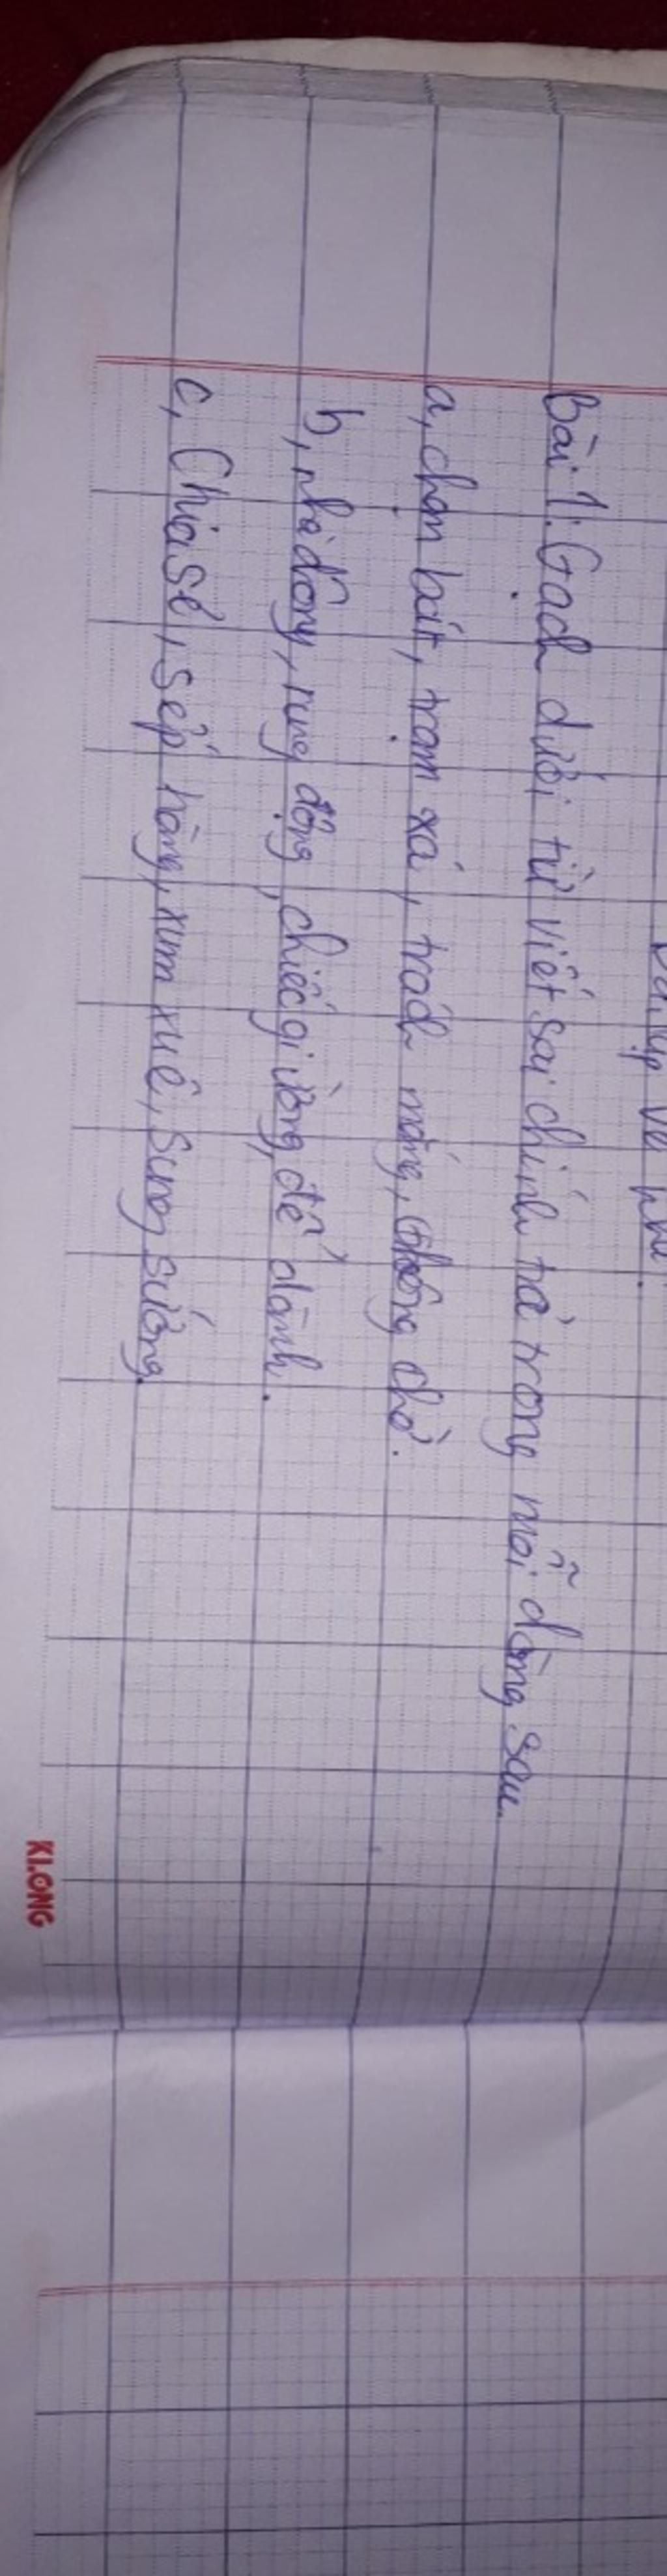 Bài 1: Gạch dưới từ viết sai chính tả trong mỗi dòng sau.
a, chạm bát, trạm xá, trách mắng, chông chờ.
b, nhà dông, rung động, chiếc giường, để dành.
c, Chia sẻ, sếp hàng, xum xuê, sung sướng.
KLONG